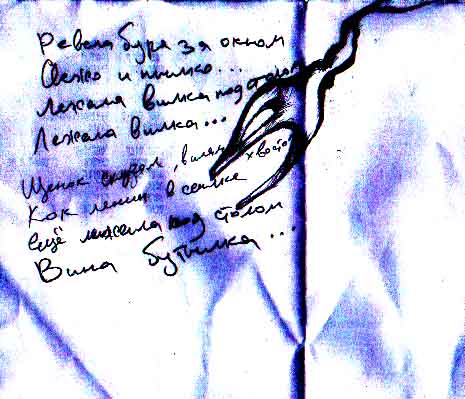 Ревела буря за окном
и пылко...
Лежала вилка под столом
Лежала вилка...
Щенок скулил, виляя хвостом
Как Ленин в
ещё лежала под столом
Вина бутылка...